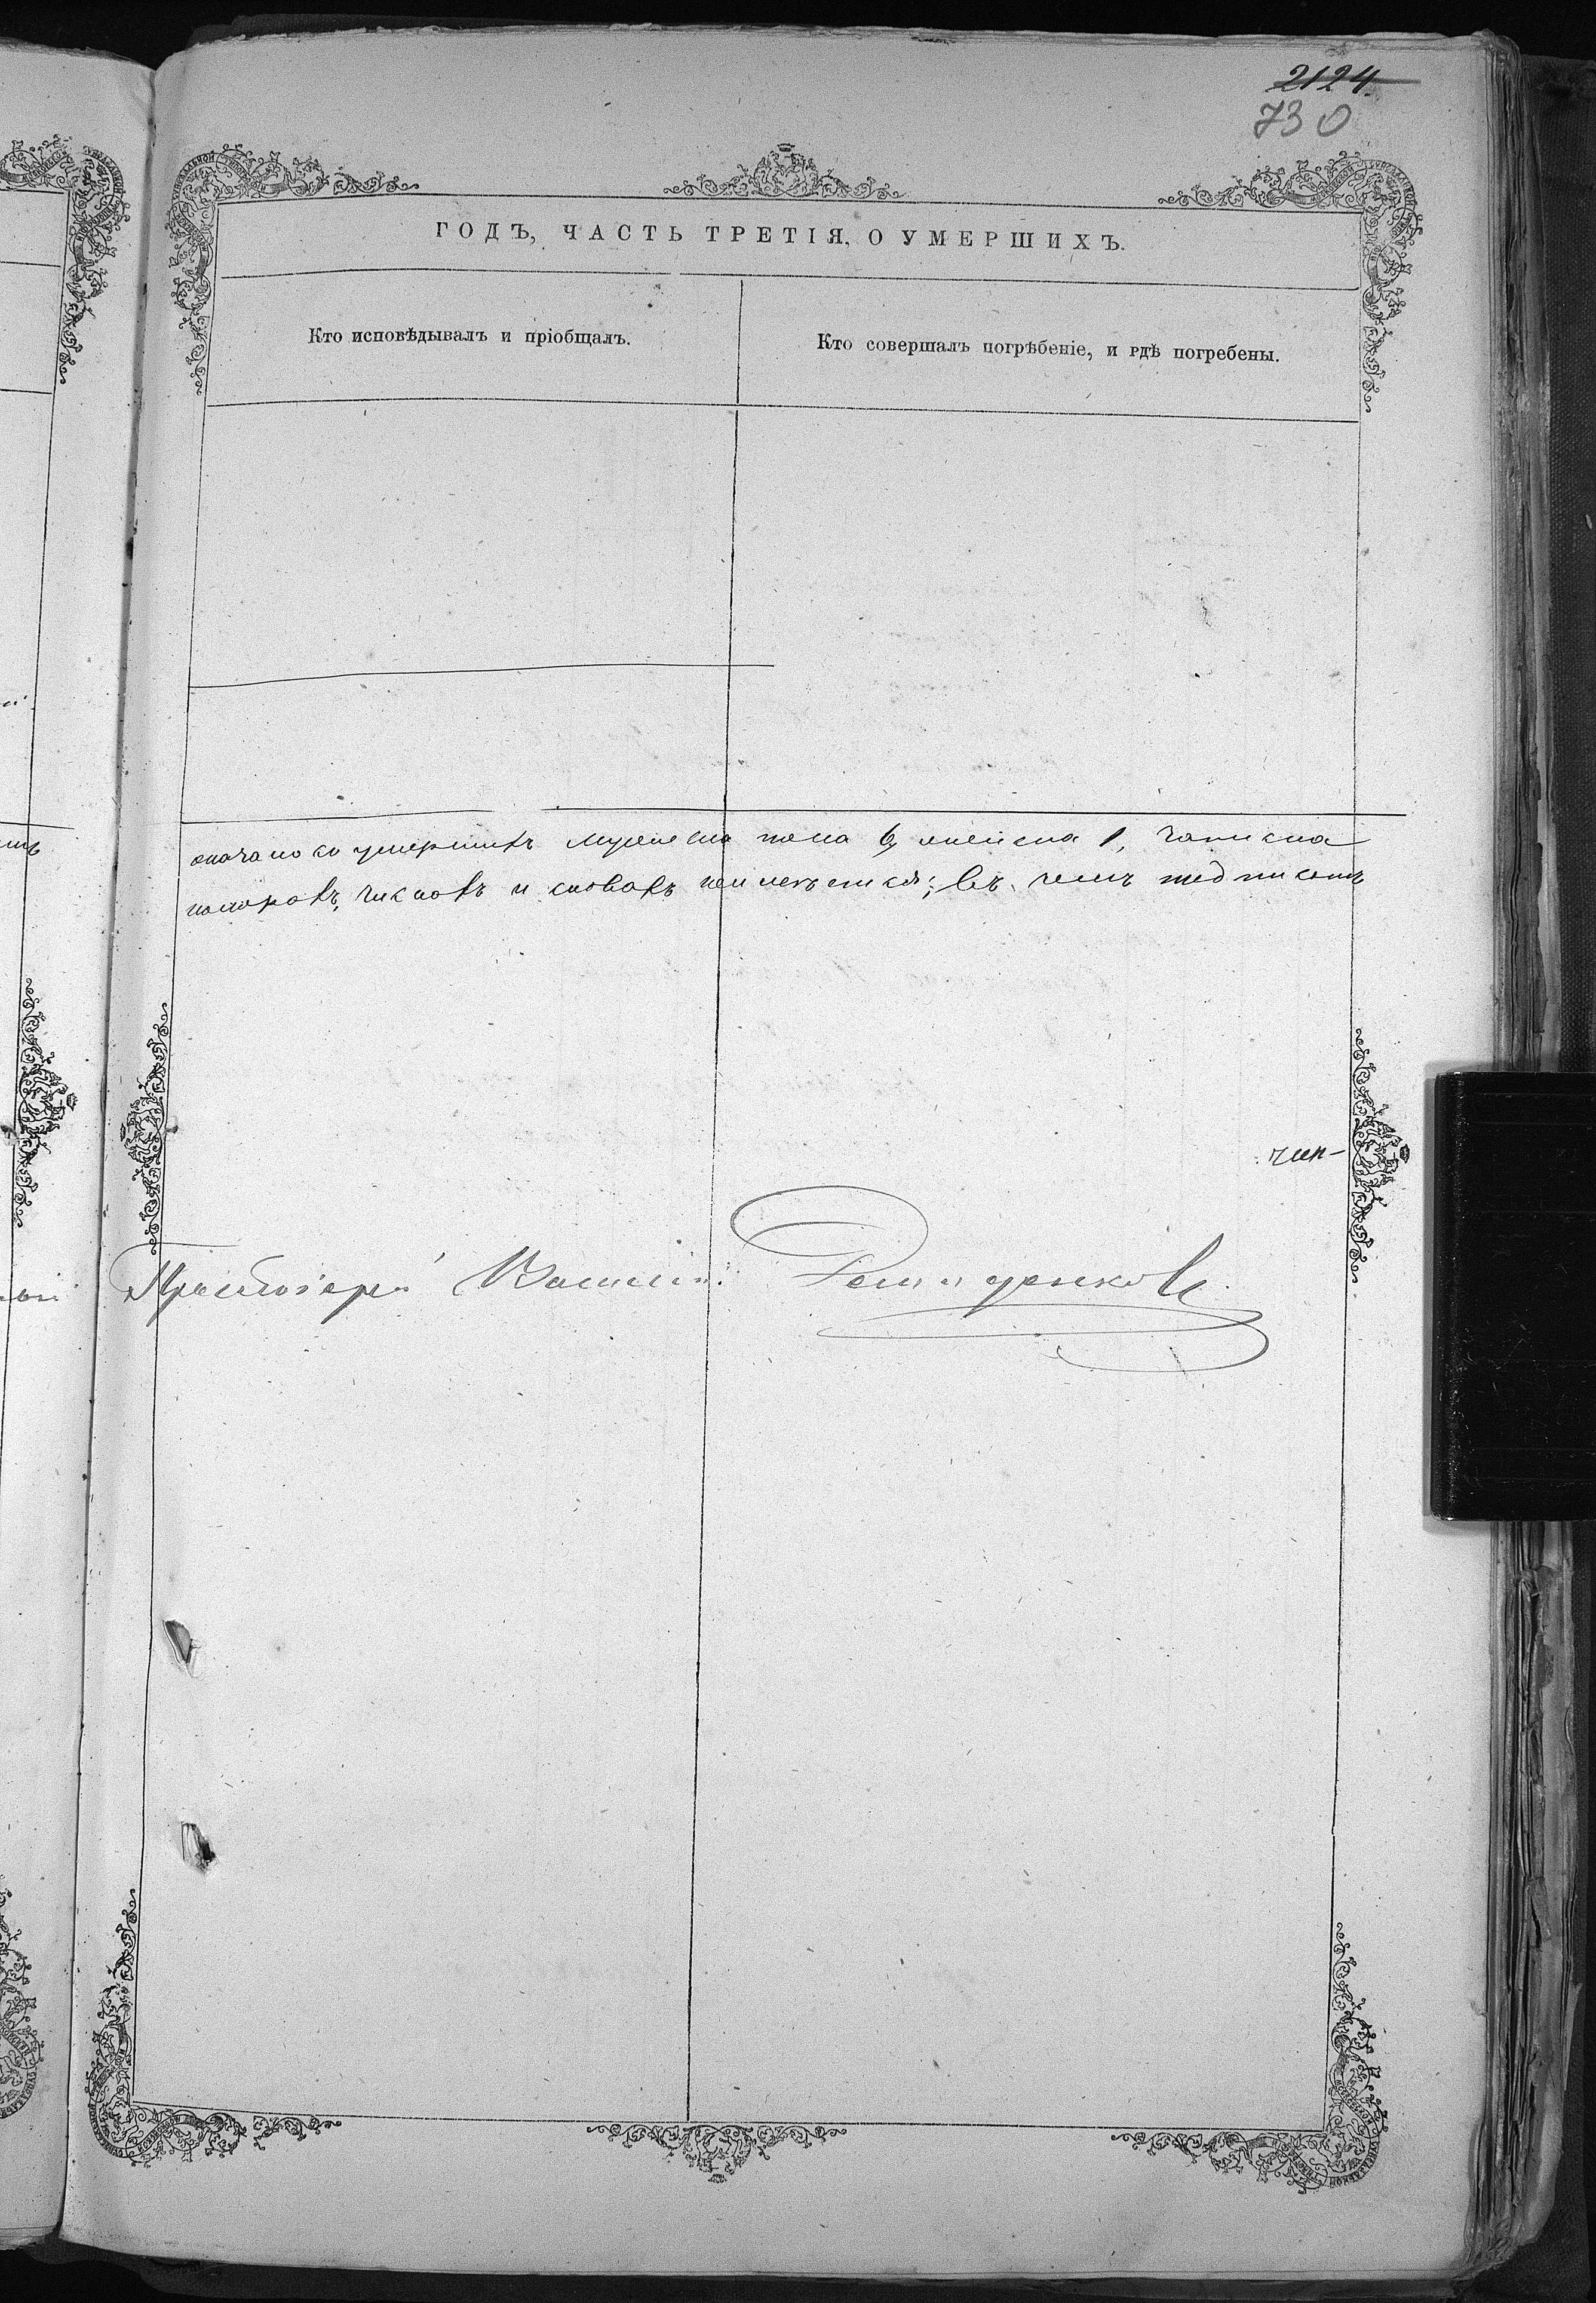 2124
730
ГОДЪ, ЧАСТЬ ТРЕТІЯ, О УМЕРШИХЪ.
Кто исповѣдывалъ и пріобщалъ.
Кто совершалъ погрѣбеніе, и гдѣ погребены.
умершихъ мужеска пола 6, женска 1,
числахъ и словахъ не имѣется; въ чемъ подписомъ
Протоіерей Василій